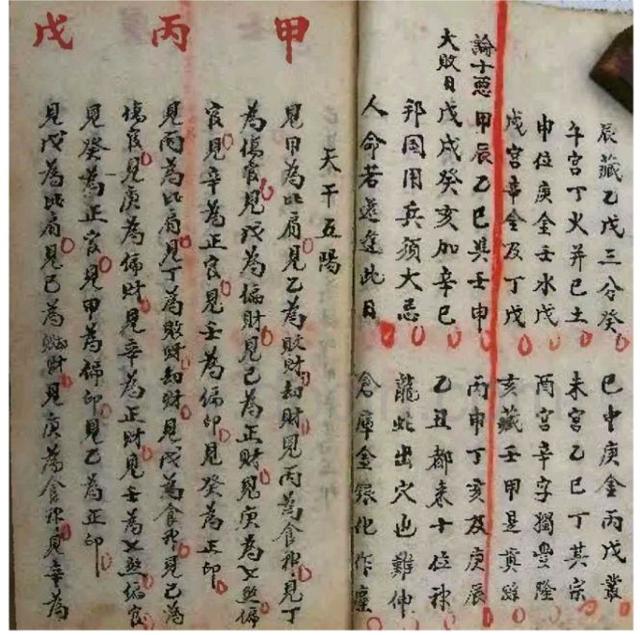 辰藏乙戊三分癸 巳中庚金丙戊叢
午宫丁火并己土 未宫乙己丁其宗
申位庚金壬水戊 酉宫辛字獨豐隆
戌宫辛金及丁戊 亥藏壬甲是真踪
論十惡
大敗日
甲辰乙巳與壬申 丙申丁亥及庚辰
戊戌癸亥加辛巳 乙丑都来十位神
邦国用兵須大忌 龍蛇出穴也難伸
人命若還逢此日 倉庫金銀化作塵
天干五陽
甲
見甲為比肩見乙為敗財劫財見丙為食神見丁
為傷官見戊為偏財見己為正財見庚為七煞偏
官見辛為正官見壬為偏印見癸為正印
丙
見丙為比肩見丁為敗財劫財見戊為食神見己為
傷官見庚為偏財見辛為正財見壬為七煞偏官
見癸為正官見甲為偏印見乙為正印
戊
見戊為比肩見己為財見庚為食神見辛為